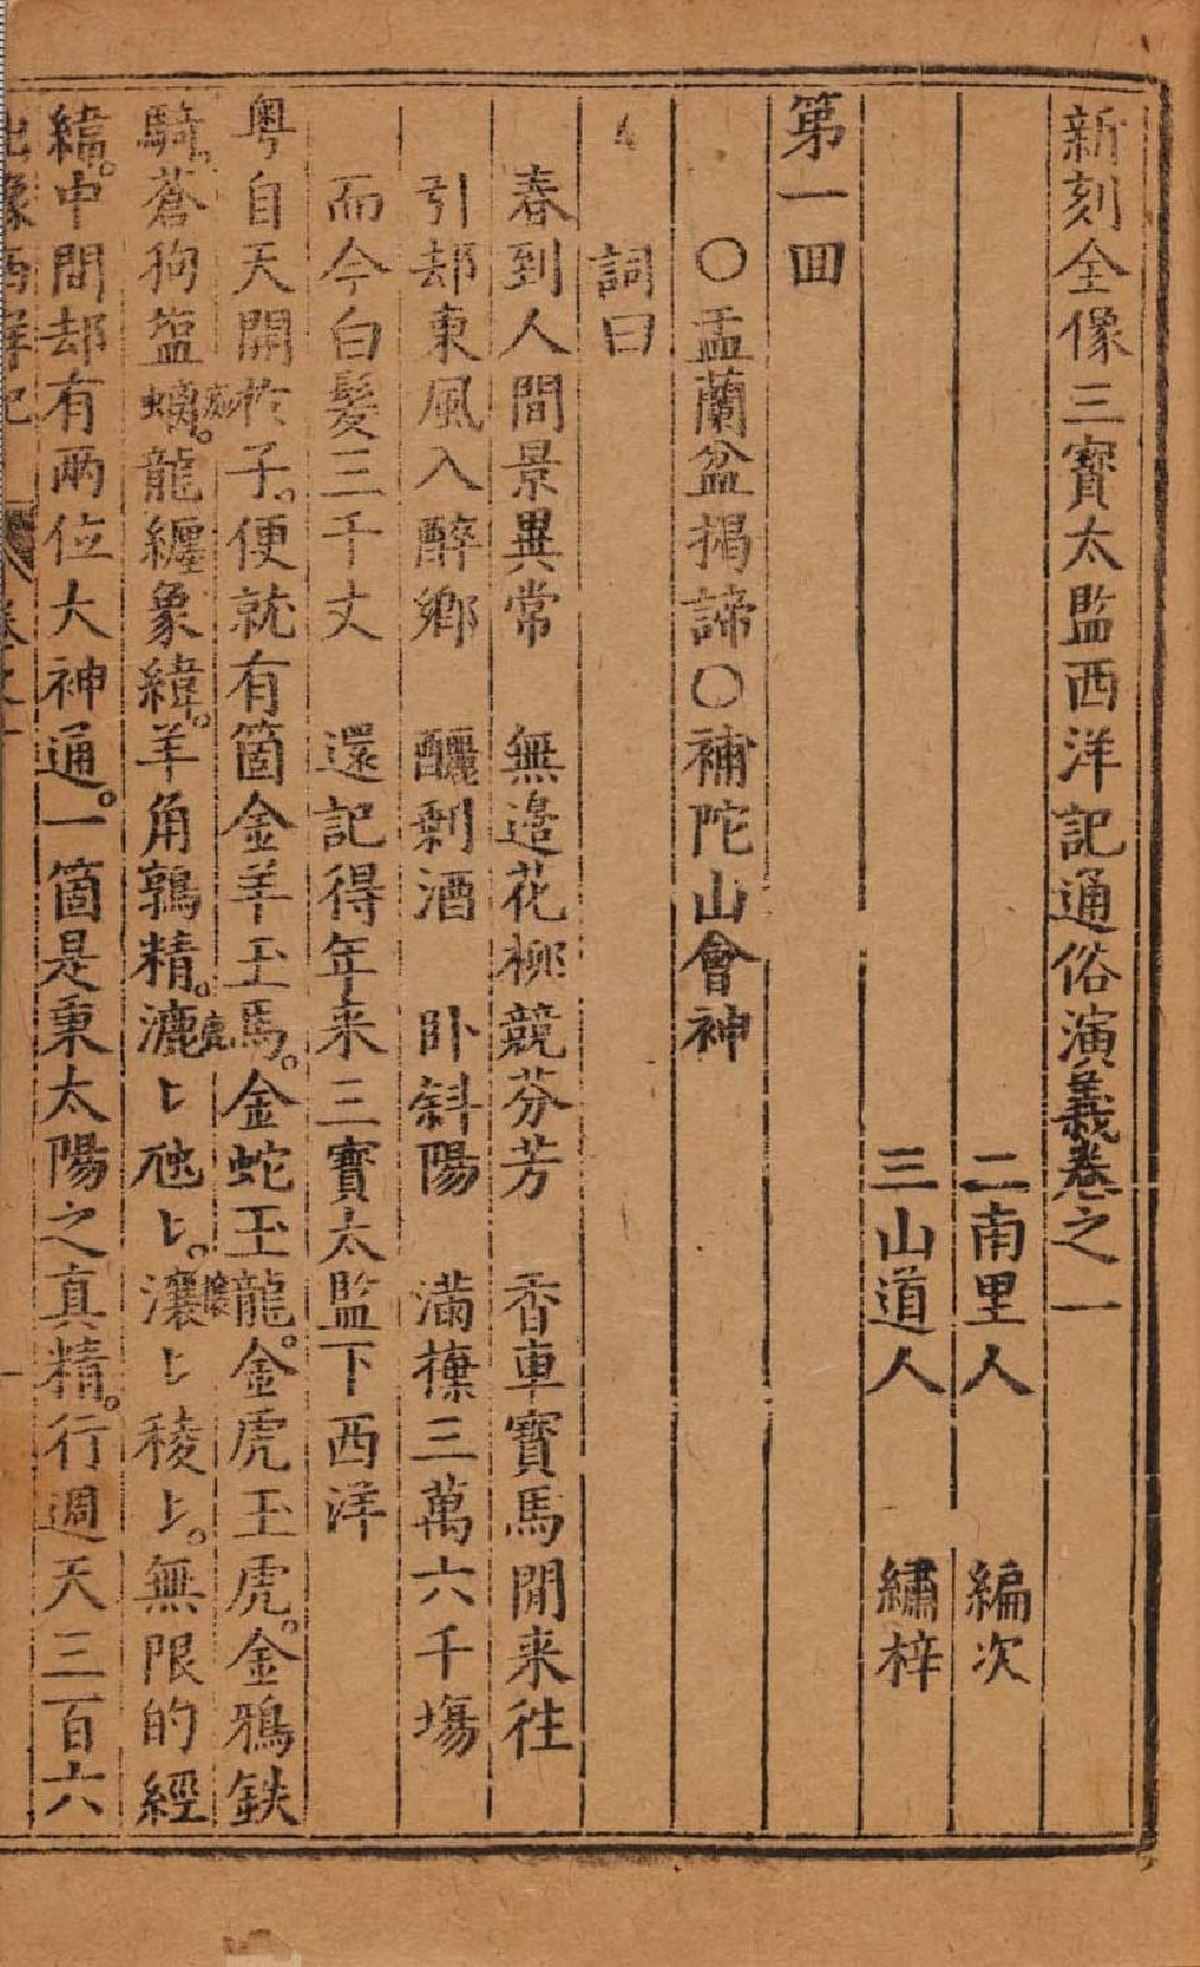 新刻全像三寶太監西洋記通俗演義卷之一
二南里人 編次
三山道人 繡梓
第一囬
〇盂蘭盆揭諦〇補陀山會神
詞曰
春到人間景異常 無邉花柳競芬芳 香車寶馬閒来徃
引却東風入醉鄉 釃剩酒 卧斜陽 滿𢷬三萬六千塲
而今白髮三千丈 還記得年来三寶太監下西洋
粤自天開於子。便就有箇金羊玉馬。金蛇玉龍。金虎玉虎。金鴉鉄
騎。蒼狗盐螭。龍纏象緯。羊角鶉精。漉〻虺〻。瀼〻稜〻。無限的經
緯。中間却有兩位大神通。一箇是秉太陽之真精。行週天三百六